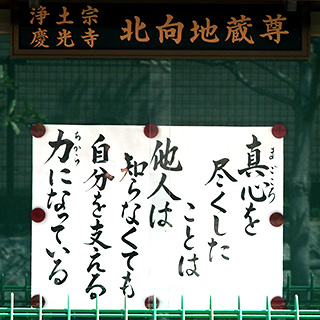 浄土宗
慶光寺
北向地蔵尊
真心を
まごころ
尽くした
ことは
他人は
知らなくても
自分を支える
力になっている
ちから